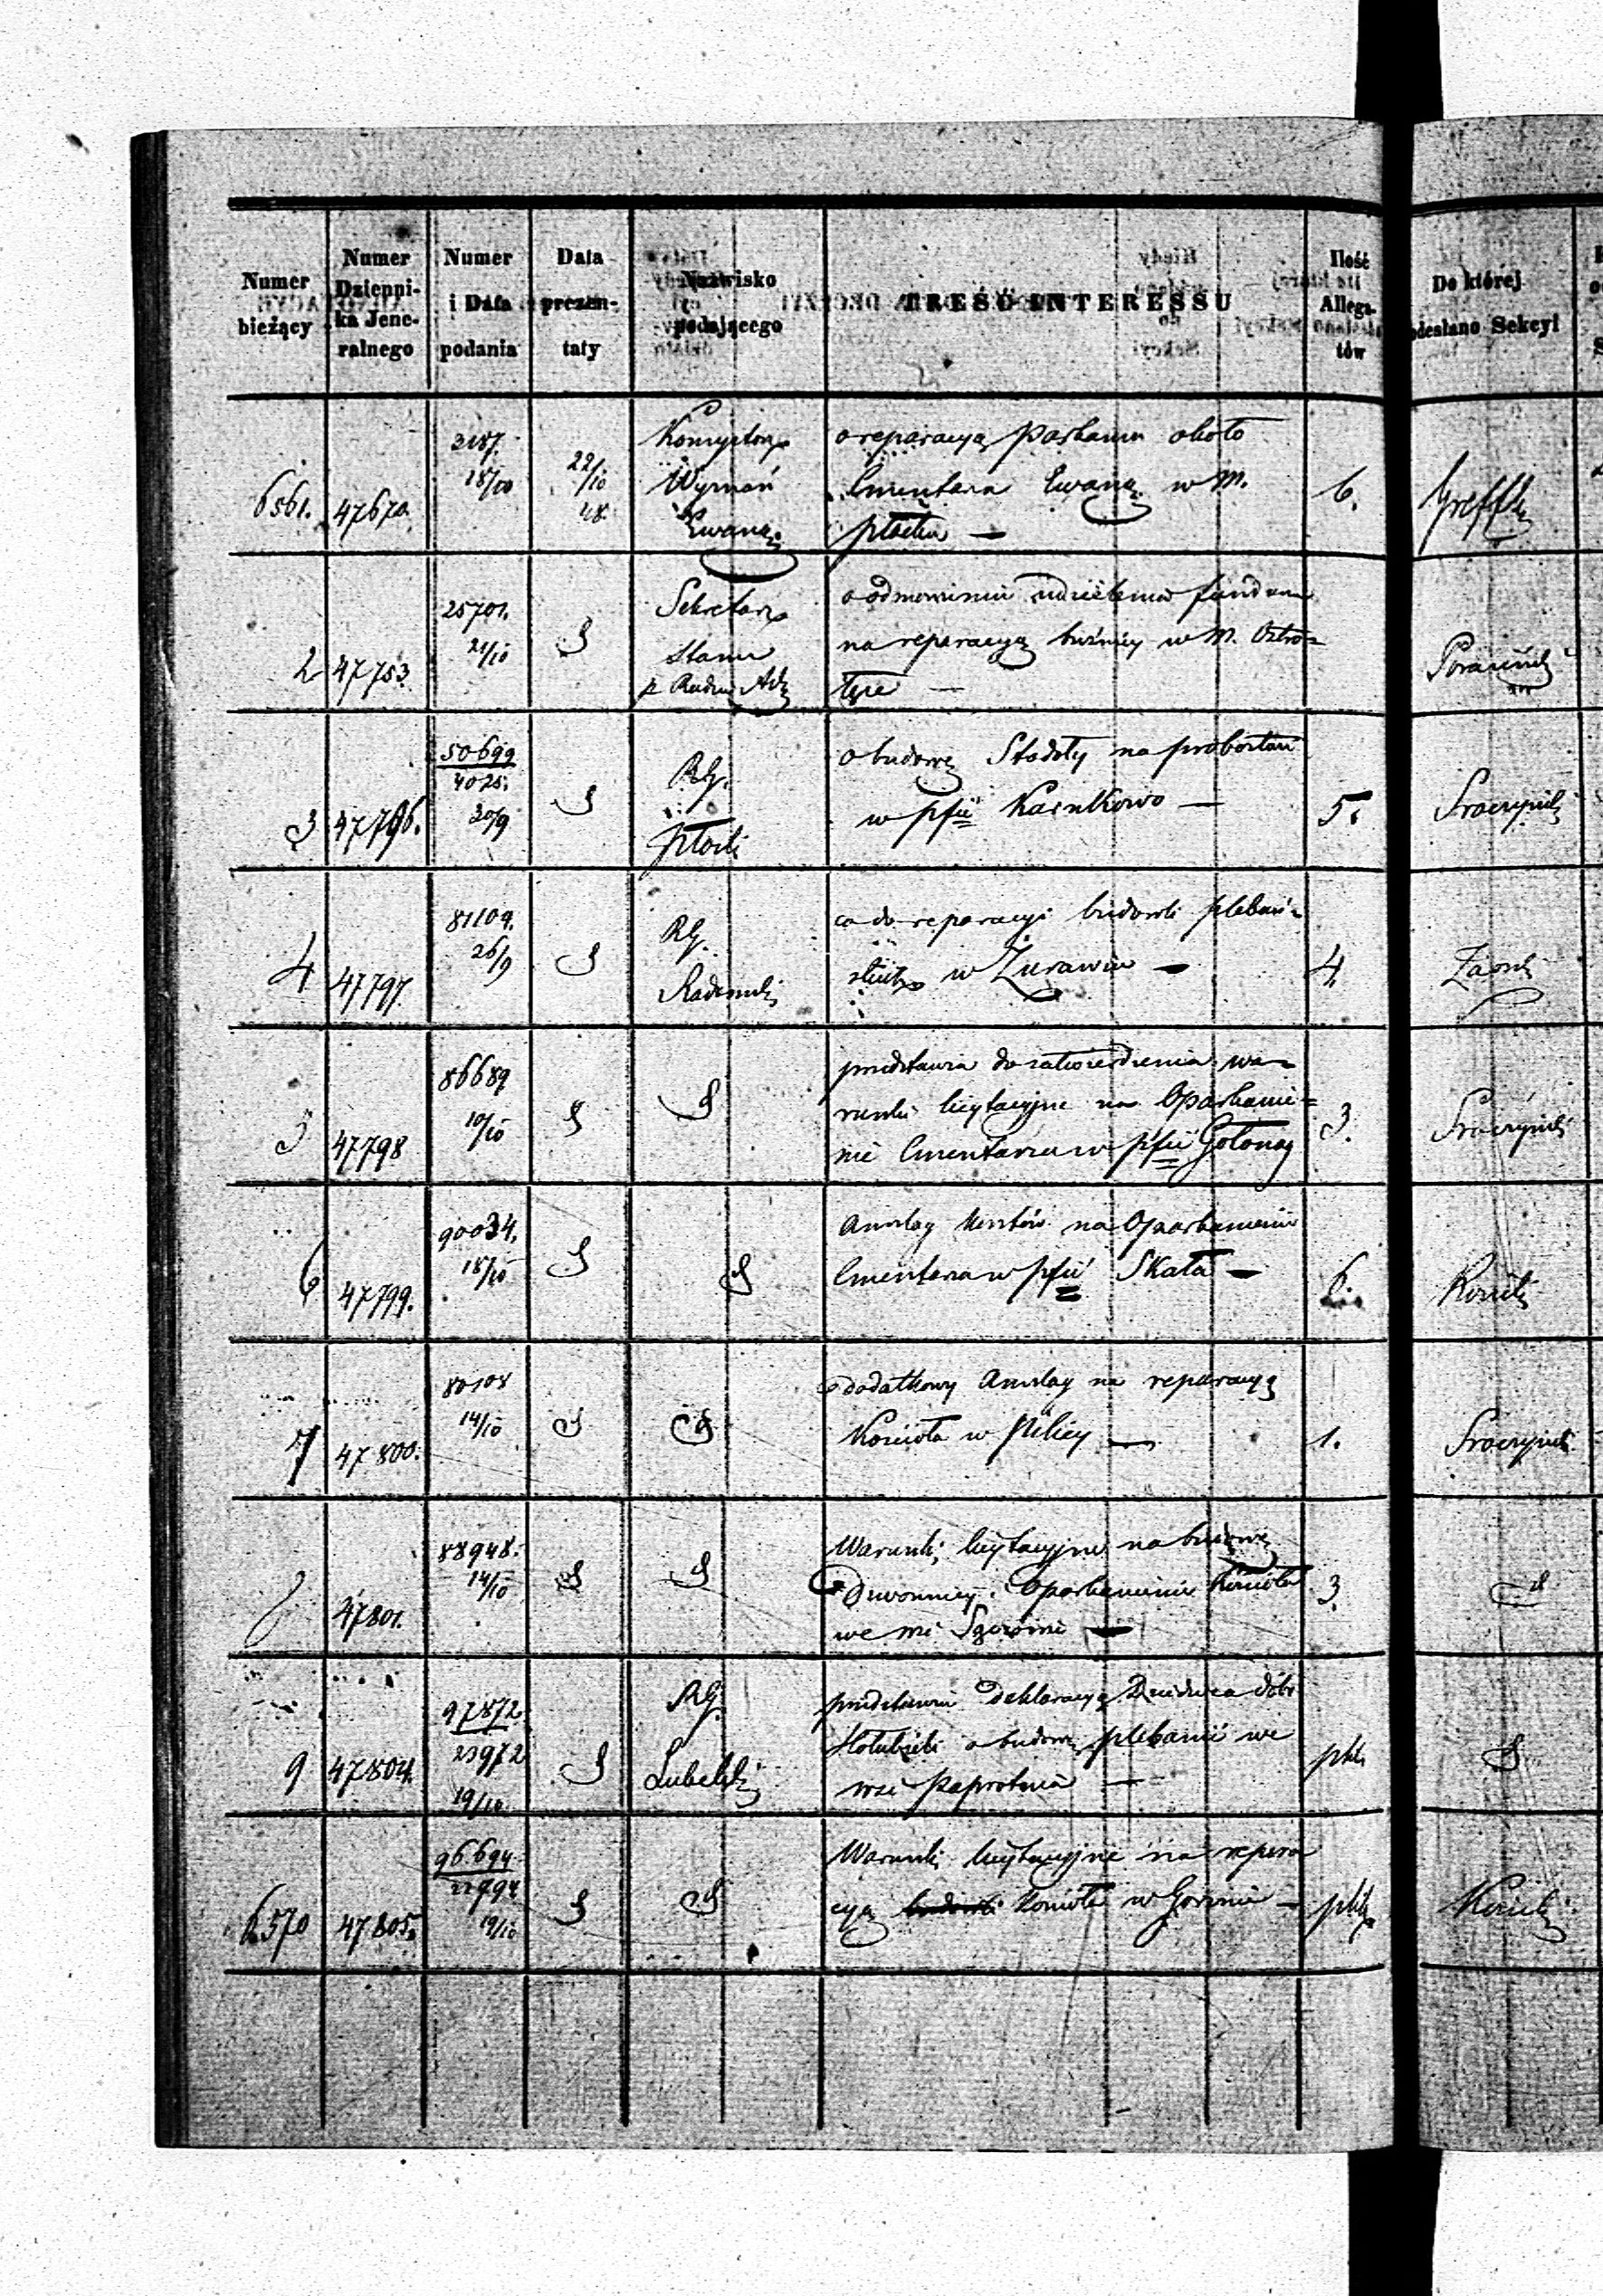 Numer
bieżący
Numer
Dzienni-
ka Jene-
ralnego
Numer
i Data
podania
Data
prezen-
taty
Nazwisko
podającego
TREŚĆ INTERESSU
Ilość
Allega-
tów
Do której
odesłano Sekcyi
6561.
47670.
3187.
18/10
22/10
48.
Konsystorz
Wyznań
Ewang.
o reparacyą parkanu około
Cmentarza Ewang. w M.
Płocku —
6.
2
47753.
25701.
21/10
Sekretarz
Stanu
o odmówieniu udzielenia fundusz
na reparacyą bużnicy w M. Ostro=
łęce —
3
47796.
50699
4025.
30/9
RG.
Płocki
o budowę Stodoły na probostwie
w pfii —
5.
4
47797.
81109.
26/9
RG.
Radomski
co do reparacyi budowli plebań=
skich w Żurawiu —
4.
5
47798
86689
10/10
przedstawia do zatwierdzenia wa=
runki licytacyjne na Oparkanie=
nie Cmentarza w pfii Gołonog
3.
6
47799.
90034.
18/10
Anszlag kosztów na Oparkanienie
Cmentarza w pfii Skała —
6.
7
47800.
80108
14/10
dodatkowy Anszlag na reparacyą
Kościoła w Pilicy —
1.
8
47801.
88948.
14/10
Warunki licytacyjne na budowę
Dzwonnicy i Oparkanienie Kościoła
we wsi
3.
9
47804.
97872
23972
19/10
RG.
Lubelski
przedstawia deklaracyą Dziedzica dóbr
o budowę plebanii we
wsi Paprotnia —
6570
47805.
96694
22994
19/10
Warunki licytacyjne na repera
cyą Kościoła w Gorznie —